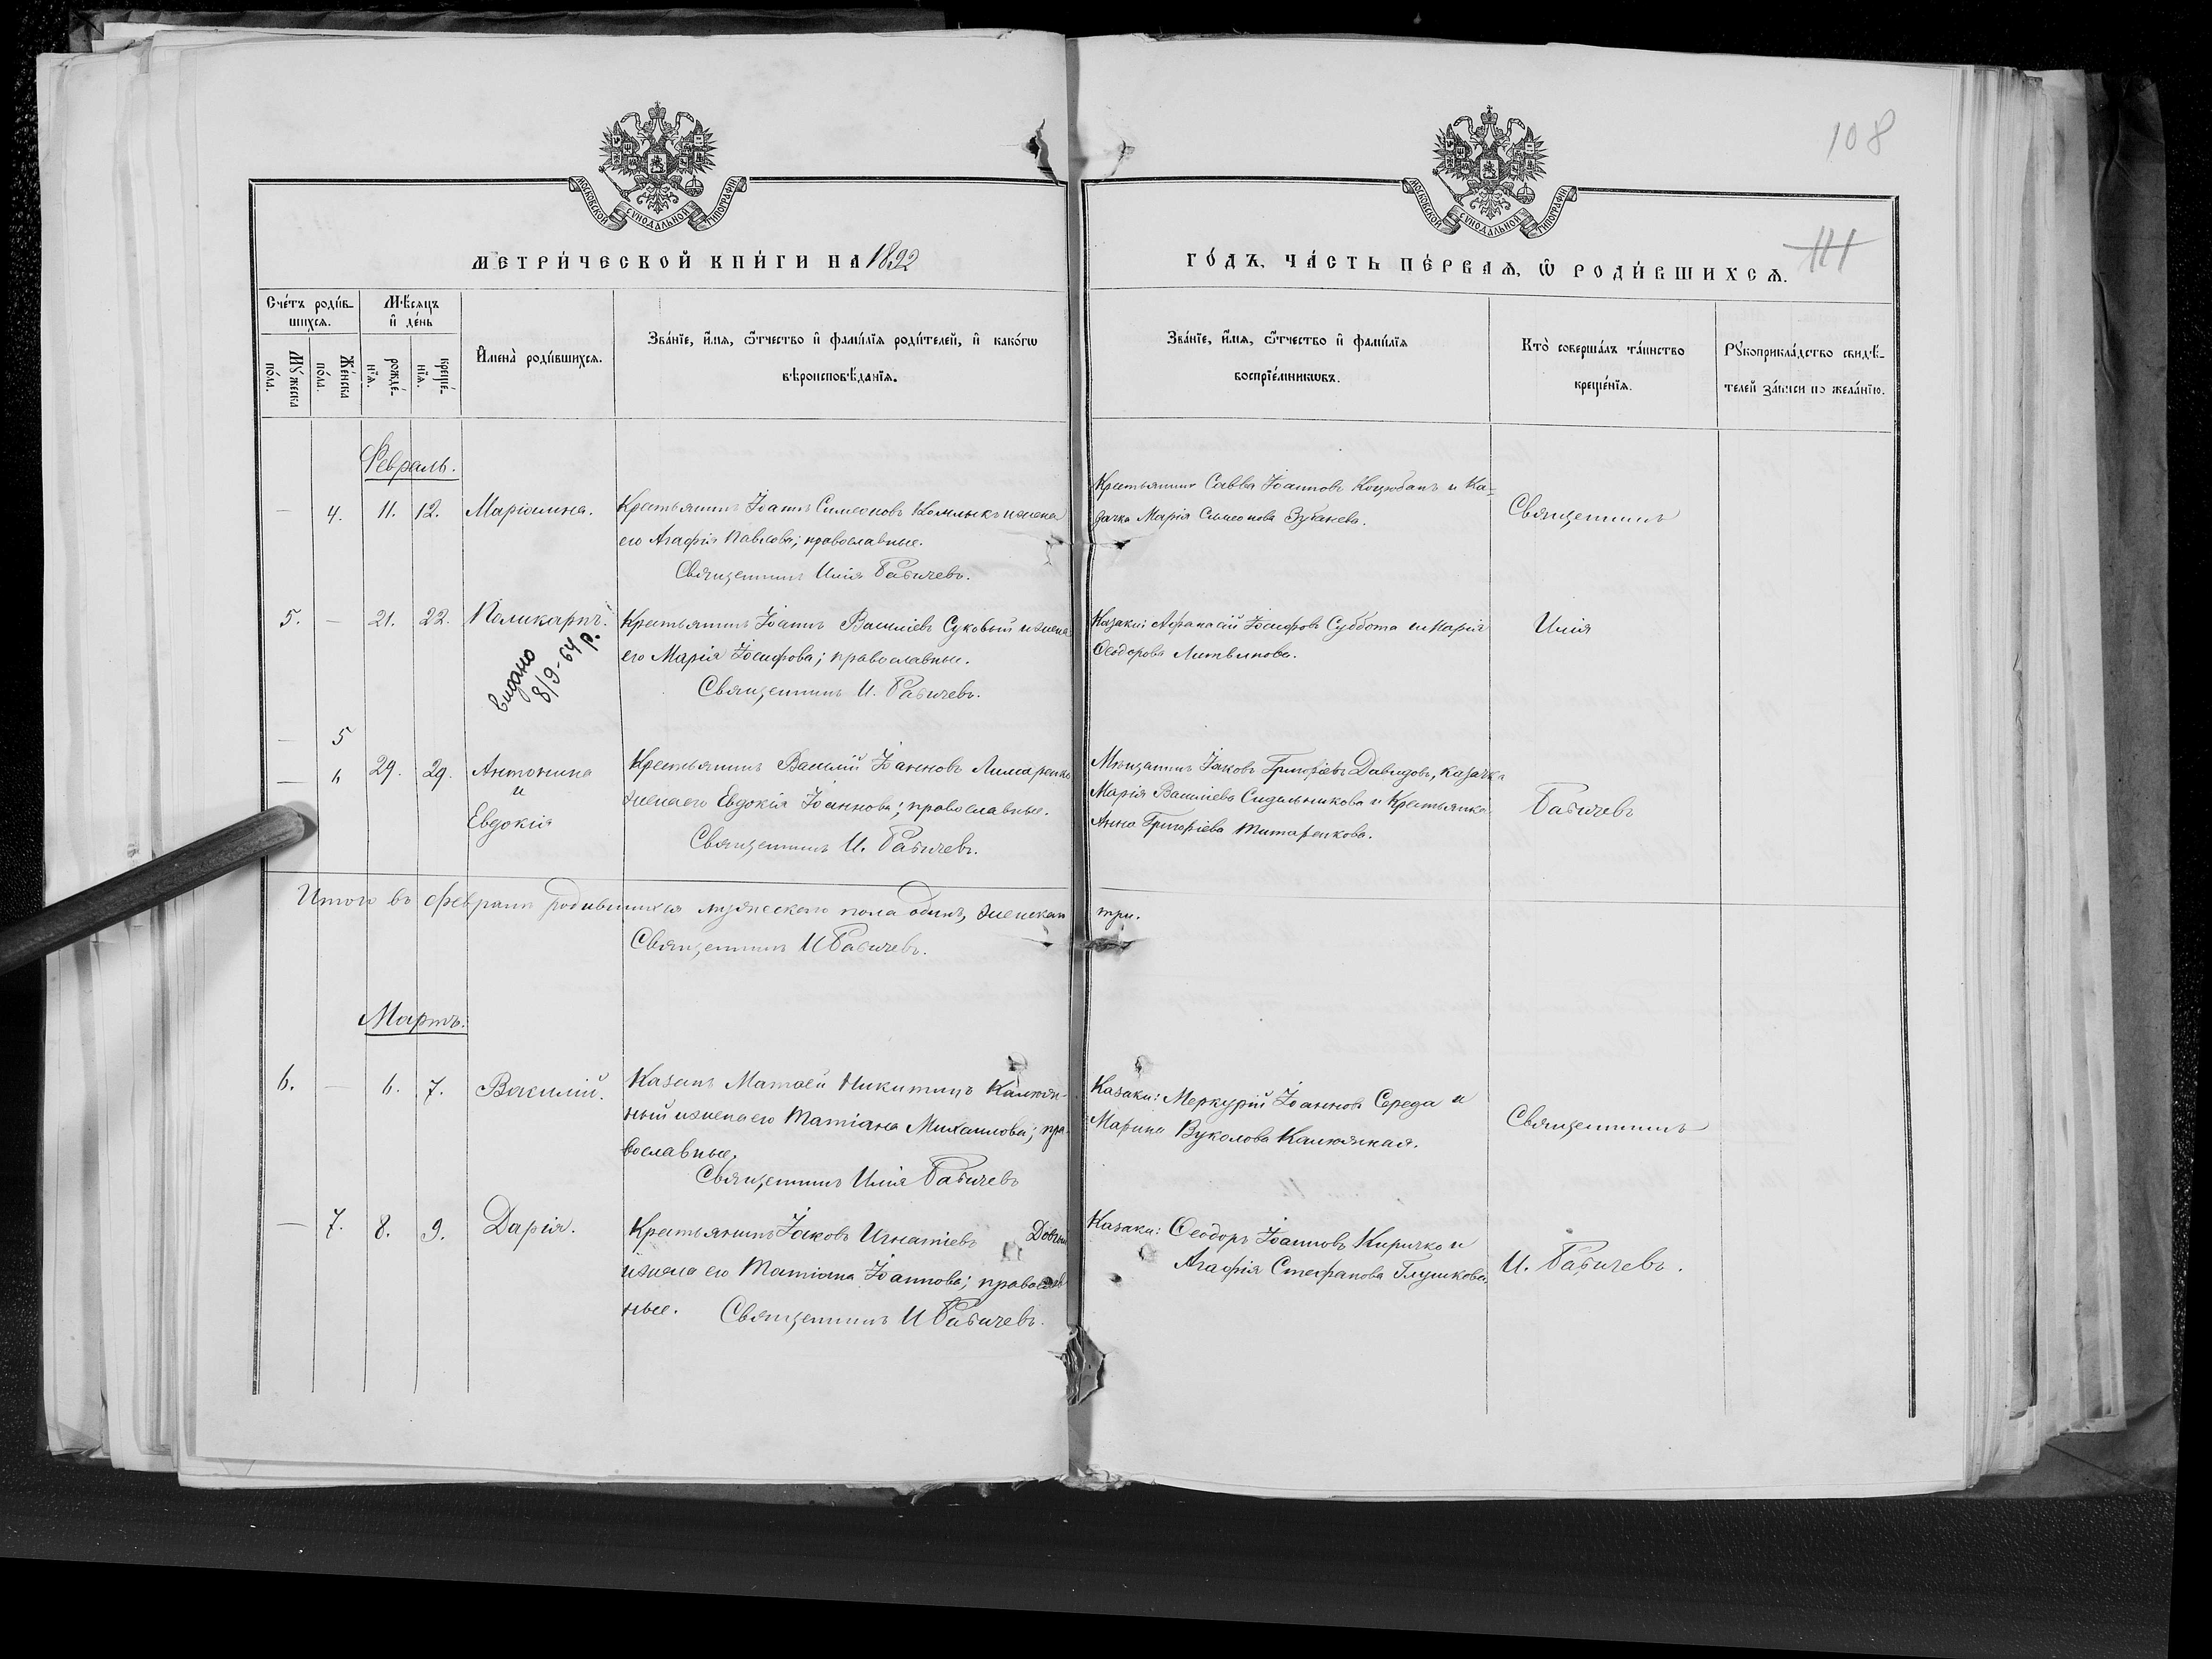 108
111
МОСКОВСКОЙ СУНОДАЛЬНОЙ ТИПОГРАФІИ
МОСКОВСКОЙ СУНОДАЛЬНОЙ ТИПОГРАФІИ
МЕТРИ́ЧЕСКОЙ КНИ́ГИ НА 1892
ГО́ДЪ, ЧА́СТЬ ПЕ́РВАѦ, Ѡ҆ РОДИ́ВШИХСѦ.
Сче́тъ роди́в-
шихсѧ.
Мѣ́сѧцъ
и҆ де́нь
Мꙋ́жеска
по́ла.
Же́нска
по́ла.
рожде́-
нїѧ.
креще́-
нїѧ.
И҆мена̀ роди́вшихсѧ.
Зва́нїе, и҆́мѧ, ѻ҆́тчество и҆ фами́лїѧ роди́телей, и҆ како́гѡ
вѣроисповѣ́данїѧ.
Зва́нїе, и҆́мѧ, ѻ҆́тчество и҆ фами́лїѧ
воспрїе́мникѡвъ.
Кто̀ соверша́лъ та́инство
креще́нїѧ.
Рꙋкоприкла́дство свидѣ́-
телей за́писи по жела́нїю.
Февраль.
— 4. 11. 12. Маріамна. Крестьянинъ Іоаннъ Симеоновъ Комлыкъ и жена
его Агафія Павлова; православные.
Священникъ Илія Бабичевъ.
Крестьянинъ Савва Іоанновъ Коцюбанъ и Ка-
зачка Марія Симеонова Зубанева.
Священникъ
5. — 21. 22. Поликарпъ. Крестьянинъ Іоаннъ Василіевъ Суковый и жена
его Марія Іосифова; православные.
Священникъ И. Бабичевъ.
видано
8/9-64 р.
Казаки: Афанасій Іосифовъ Суббота и Марія
Ѳеодорова Литвинова.
Илія
— 5
— 6 29. 29. Антонина
и
Евдокія
Крестьянинъ Василій Іоанновъ Лимаренко
жена его Евдокія Іоаннова; православные.
Священникъ И. Бабичевъ.
Мѣщанинъ Іаковъ Григоріевъ Давидовъ, казачка
Марія Василіева Сидельникова и Крестьянка
Анна Григоріева Титаренкова.
Бабичевъ
Итого въ февралѣ родившихся мужескаго пола одинъ, женскаго три.
Священникъ И Бабичевъ.
Мартъ.
6. — 6. 7. Василій. Казакъ Матѳей Никитинъ Калюж-
ный и жена его Татіана Михаилова; пра-
вославные.
Священникъ Илія Бабичевъ
Казаки: Меркурій Іоанновъ Середа и
Марина Вуколова Калюжная.
Священникъ
— 7. 8. 9. Дарія. Крестьянинъ Іаковъ Игнатіевъ
и жена его Татіана Іоаннова; православ-
ные. Священникъ И Бабичевъ.
Казаки: Ѳеодоръ Іоанновъ Киричко и
Агафія Стефанова Глушкова.
И. Бабичевъ.